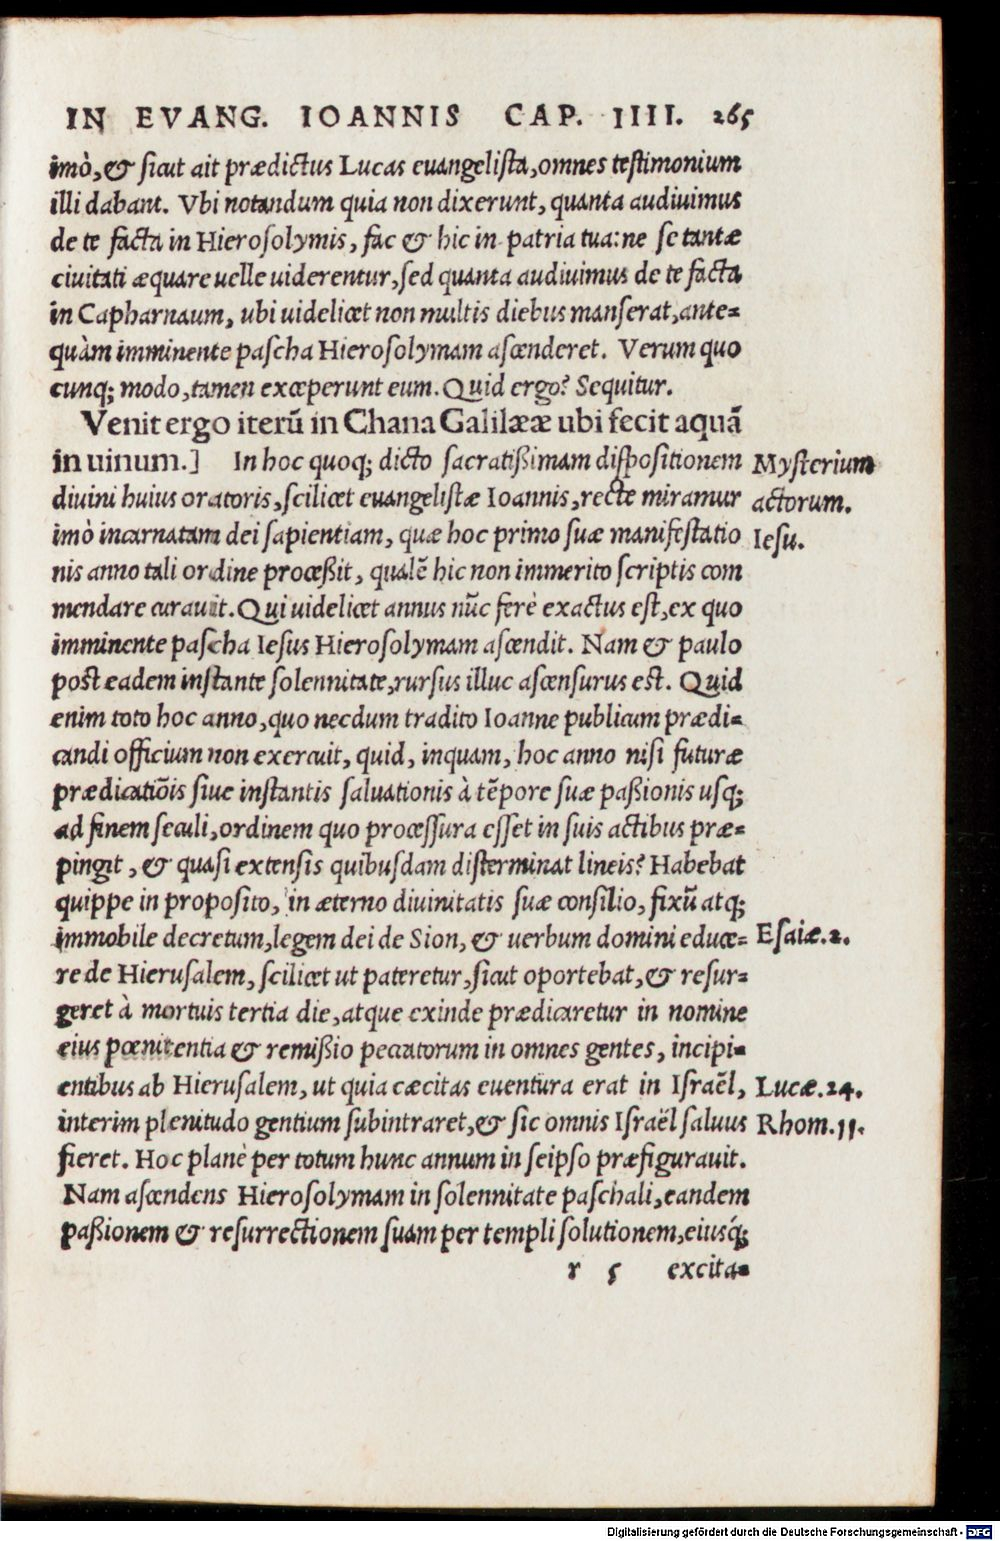 IN EVANG. IOANNIS CAP. IIII. 265
imò, & sicut ait prædictus Lucas euangelista, omnes testimonium
illi dabant. Vbi notandum quia non dixerunt, quanta audiuimus
de te facta in Hierosolymis, fac & hic in patria tua: ne se tantæ
ciuitati æquare uelle uiderentur, sed quanta audiuimus de te facta
in Capharnaum, ubi uidelicet non multis diebus manserat, ante-
quàm imminente pascha Hierosolymam ascenderet. Verum quo
cunq; modo, tamen exceperunt eum. Quid ergo? Sequitur.
Venit ergo iterũ in Chana Galilææ ubi fecit aquã
in uinum.] In hoc quoq; dicto sacratißimam dispositionem
Mysterium
diuini huius oratoris, scilicet euangelistæ Ioannis, recte miramur
actorum.
imò incarnatam dei sapientiam, quæ hoc primo suæ manifestatio
Iesu.
nis anno tali ordine proceßit, qualẽ hic non immerito scriptis com
mendare curauit. Qui uidelicet annus nũc ferè exactus est, ex quo
imminente pascha Iesus Hierosolymam ascendit. Nam & paulo
post eadem instante solennitate, rursus illuc ascensurus est. Quid
enim toto hoc anno, quo necdum tradito Ioanne publicum prædi-
candi officium non exercuit, quid, inquam, hoc anno nisi futuræ
prædicatiõis siue instantis saluationis à tẽpore suæ paßionis usq;
ad finem seculi, ordinem quo processura esset in suis actibus præ-
pingit, & quasi extensis quibusdam disterminat lineis? Habebat
quippe in proposito, in æterno diuinitatis suæ consilio, fixũ atq;
immobile decretum, legem dei de Sion, & uerbum domini educe-
Esaiæ. 2.
re de Hierusalem, scilicet ut pateretur, sicut oportebat, & resur-
geret à mortuis tertia die, atque exinde prædicaretur in nomine
eius pœnitentia & remißio peccatorum in omnes gentes, incipi-
entibus ab Hierusalem, ut quia cæcitas euentura erat in Israẽl,
Lucæ. 24.
interim plenitudo gentium subintraret, & sic omnis Israël saluus
Rhom. 11.
fieret. Hoc planè per totum hunc annum in seipso præfigurauit.
Nam ascendens Hierosolymam in solennitate paschali, eandem
paßionem & resurrectionem suam per templi solutionem, eiusq́;
r 5 excita-
Digitalisierung gefördert durch die Deutsche Forschungsgemeinschaft - DFG